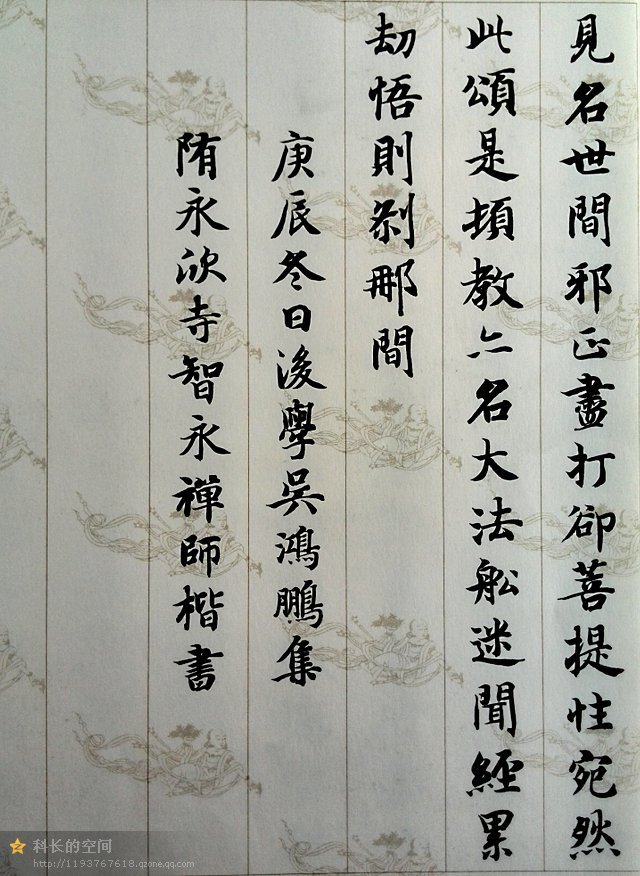 見名世間邪正盡打卻菩提性宛然
此頌是頓教亦名大法舩迷聞經累
劫悟則剎那間
庚辰冬日後學吳鴻鵬集
隋永欣寺智永禪師楷書
科长的空间
http://1193767618.qzone.qq.com